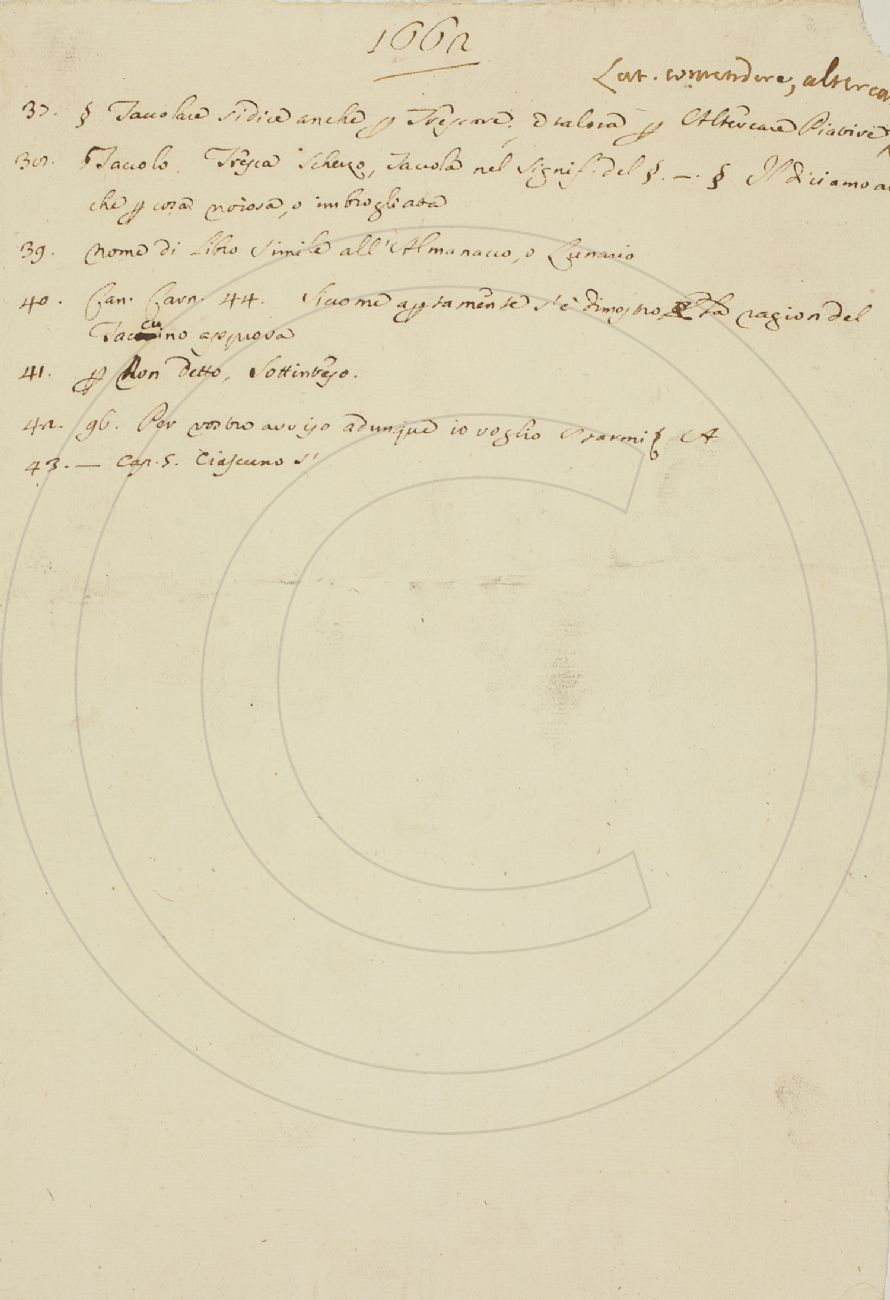 1662
Lat. contendere, alterca
37. § Taccolare si dice anche ꝑ Trescare, e talora ꝑ Altercare Piative
38. Taccolo. Tresca Scherzo, Taccola nel signif. del §. —. § Il diciamo an
che ꝑ cosa noiosa, o imbrogliata
39. nome di Libro simile all'Almanacco, o Lunario
40. Can. Carn. 44. Siccome aꝑtamente s'è dimostro, E la ragion del
Taccuino approva
41. ꝑ Non detto, Sottinteso.
42. 96. Per vostro avviso adunque io voglio starmi
43. — Cap. 5. Ciascuno s'